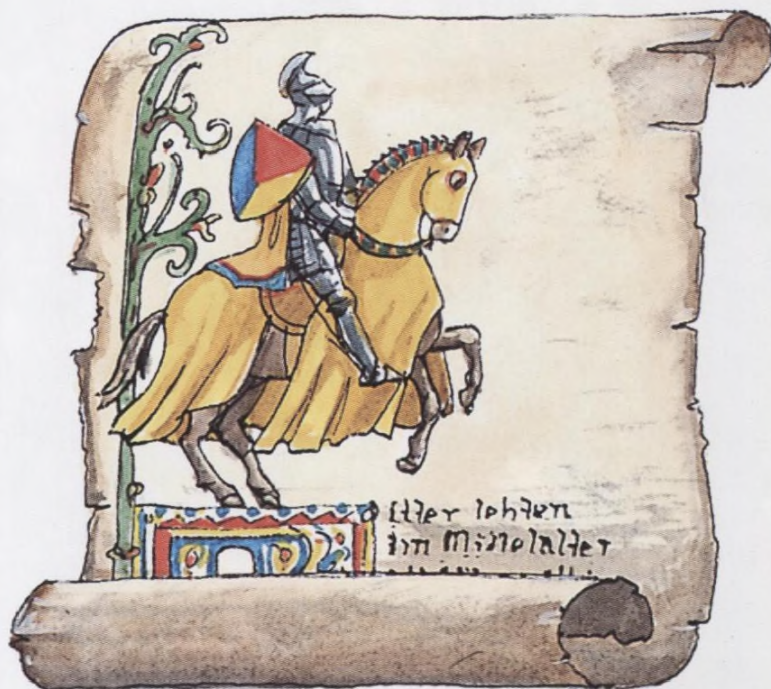 itter lebten
im Mittelalter